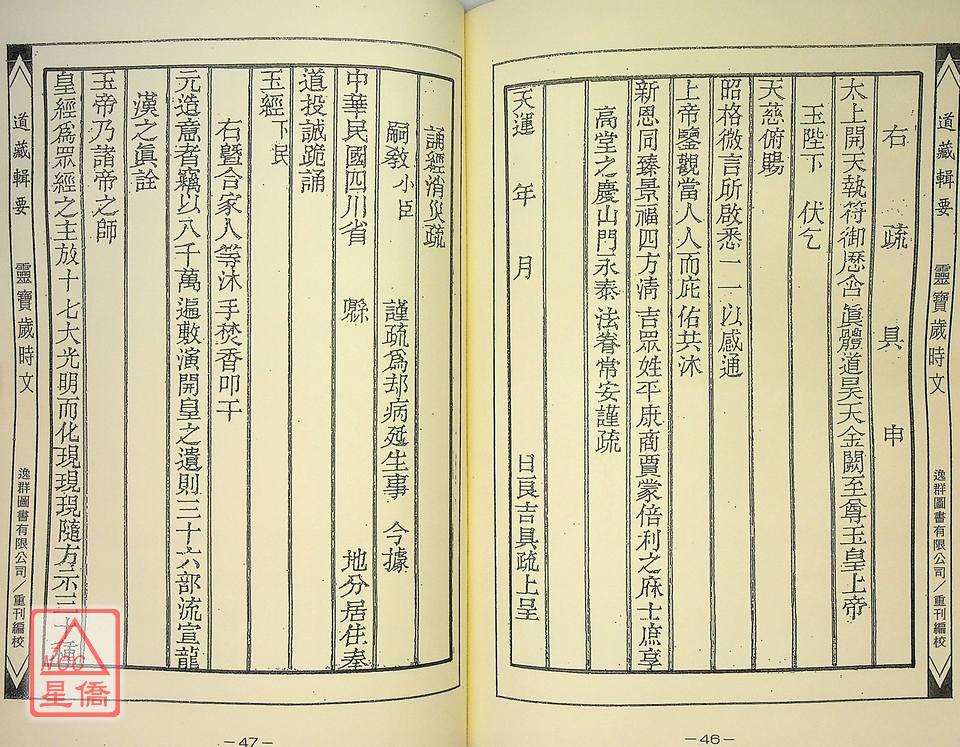 道藏輯要 靈寶歲時文 逸群圖書有限公司/重刊編校
右 疏 具 申
太上開天執符御歷含眞體道昊天金闕至尊玉皇上帝
玉陛下 伏乞
天慈俯賜
昭格微言所啟悉一一以感通
上帝鑒觀當人人而庇佑共沐
新恩同臻景福四方清吉眾姓平康商賈蒙倍利之庥士庶享
高堂之慶山門永泰法眷常安謹疏
天運 年 月 日良吉具疏上呈
－46－
誦經消災疏
嗣教小臣 謹疏為却病延生事 今據
中華民國四川省 縣 地分居住奉
道投誠跪誦
玉經下民
右曁合家人等沐手焚香叩干
元道意者竊以八千萬遍敷演開皇之遺則三十六部流宣龍
漢之眞詮
玉帝乃諸帝之師
皇經為眾經之主放十七大光明而化現現現隨方示三十種
道藏輯要 靈寶歲時文 逸群圖書有限公司/重刊編校
－47－
NCC
星僑